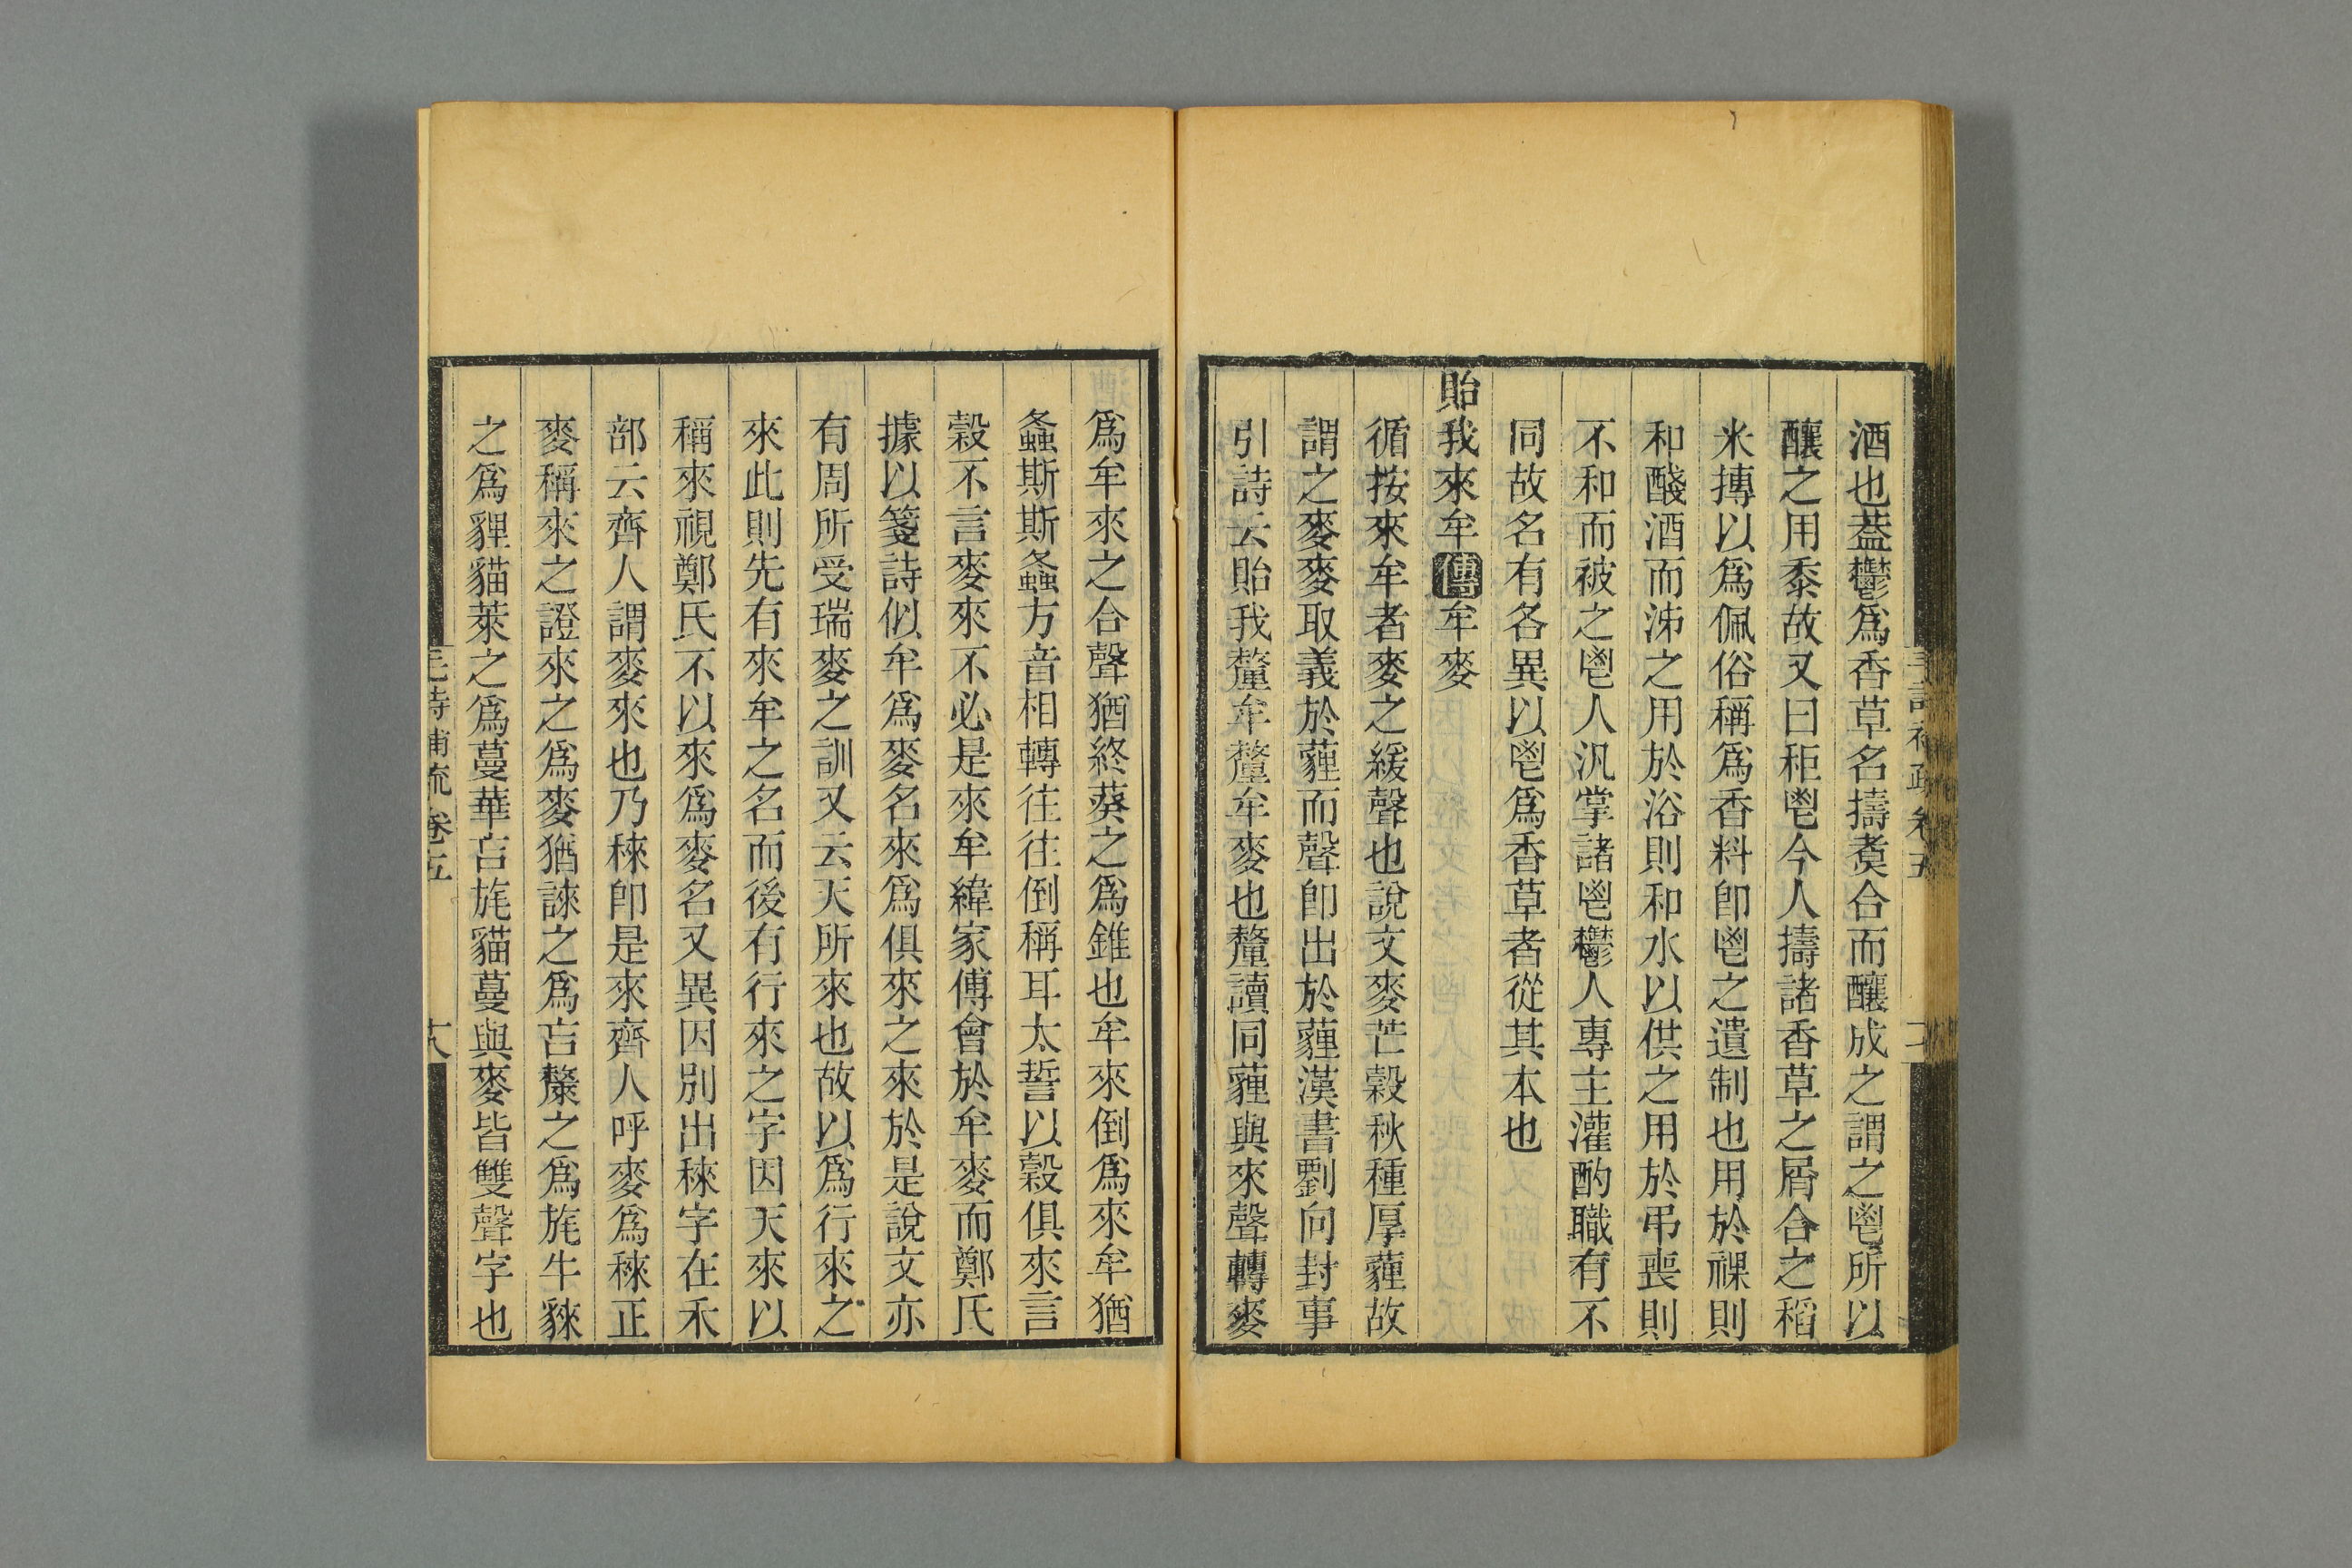 酒也葢鬱爲香草名擣煑合而釀成之謂之鬯所以
釀之用黍故又曰秬鬯今人擣諸香草之屑合之稻
米摶以爲佩俗稱爲香料卽鬯之遺制也用於祼則
和醆酒而泲之用於浴則和水以供之用於弔喪則
不和而被之鬯人汎掌諸鬯鬱人專主灌酌職有不
同故名有各異以鬯爲香草者從其本也
貽我來牟傳牟麥
循按來牟者麥之緩聲也說文麥芒穀秋種厚薶故
謂之麥麥取義於薶而聲卽出於薶漢書劉向封事
引詩云貽我釐牟釐牟麥也釐讀同薶與來聲轉麥
爲牟來之合聲猶終葵之爲錐也牟來倒爲來牟猶
螽斯斯螽方音相轉往往倒稱耳太誓以穀俱來言
穀不言麥來不必是來牟緯家傅會於牟麥而鄭氏
據以箋詩似牟爲麥名來爲俱來之來於是說文亦
有周所受瑞麥之訓又云天所來也故以爲行來之
來此則先有來牟之名而後有行來之字因天來以
稱來視鄭氏不以來爲麥名又異因別出䅘字在禾
部云齊人謂麥來也乃䅘卽是來齊人呼麥爲䅘正
麥稱來之證來之爲麥猶誺之爲䛐氂之爲旄牛貅
之爲貍貓萊之爲蔓華言旄貓蔓與麥皆雙聲字也
毛詩補疏卷五
十八